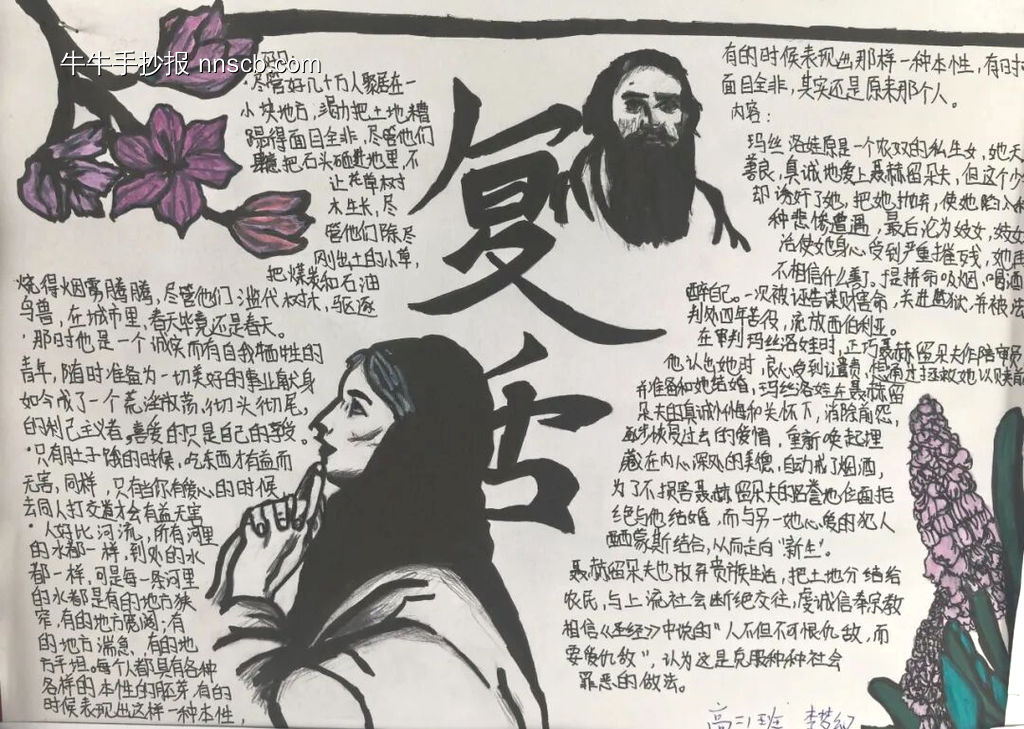 牛牛手抄报 nnscb.com
·尽管好几十万人聚居在一
小块地方，竭力把土地糟
蹋得面目全非，尽管他们
把石头砸进地里，不
让花草树
木生长，尽
管他们除尽
刚出土的小草，
把煤炭和石油
烧得烟雾腾腾，尽管他们滥伐树木，驱逐
鸟兽，在城市里，春天毕竟还是春天。
·那时他是一个诚实而有自我牺牲的
青年，随时准备为一切美好的事业献身
如今成了一个荒淫放荡，彻头彻尾。
的利己主义者。喜爱的只是自己的享受。
·只有肚子饿的时候，吃东西才有益而
无害，同样，只有当你有爱心的时候
去同人打交道才会有益无害
·人好比河流，所有河里
的水都一样，到处的水
都一样，可是每一条河里
的水都是有的地方狭
窄，有的地方宽阔；有
的地方湍急，有的地
方平坦。每个人都具有各种
各样的本性的胚芽，有的
时候表现出这样一种本性，
复活
有的时候表现出那样一种本性，有时
面目全非，其实还是原来那个人。
内容：
玛丝洛娃原是一个农奴的私生女，她天
善良，真诚地爱上聂赫留朵夫，但这个少
却诱奸了她，把她抛弃，使她陷入
种悲惨遭遇，最后沦为妓女，妓女
活使她身心受到严重摧残，她再
不相信什么善了，于是拼命吸烟，喝酒
醉自己。一次被诬告谋财害命，关进监狱，并被法
判处四年苦役，流放西伯利亚。
在审判玛丝洛娃时，正巧聂赫留朵夫作陪审员
他认出她时，良心受到谴责，想通过拯救她以赎前
并准备和她结婚，玛丝洛娃在聂赫留
朵夫的真诚忏悔和关怀下，消除前怨，
逐步恢复过去的爱情，重新唤起埋
藏在内心深处的美德，自动戒了烟酒，
为了不损害聂赫留朵夫的名誉地位而拒
绝与他结婚，而与另一她心爱的犯人
西蒙斯结合，从而走向"新生"。
聂赫留朵夫也放弃贵族生活，把土地分给给
农民，与上流社会断绝交往，虔诚信奉宗教
相信《圣经》中说的"人不但不可恨仇敌，而
要爱仇敌"，认为这是克服种种社会
罪恶的做法。
高二班 李梦